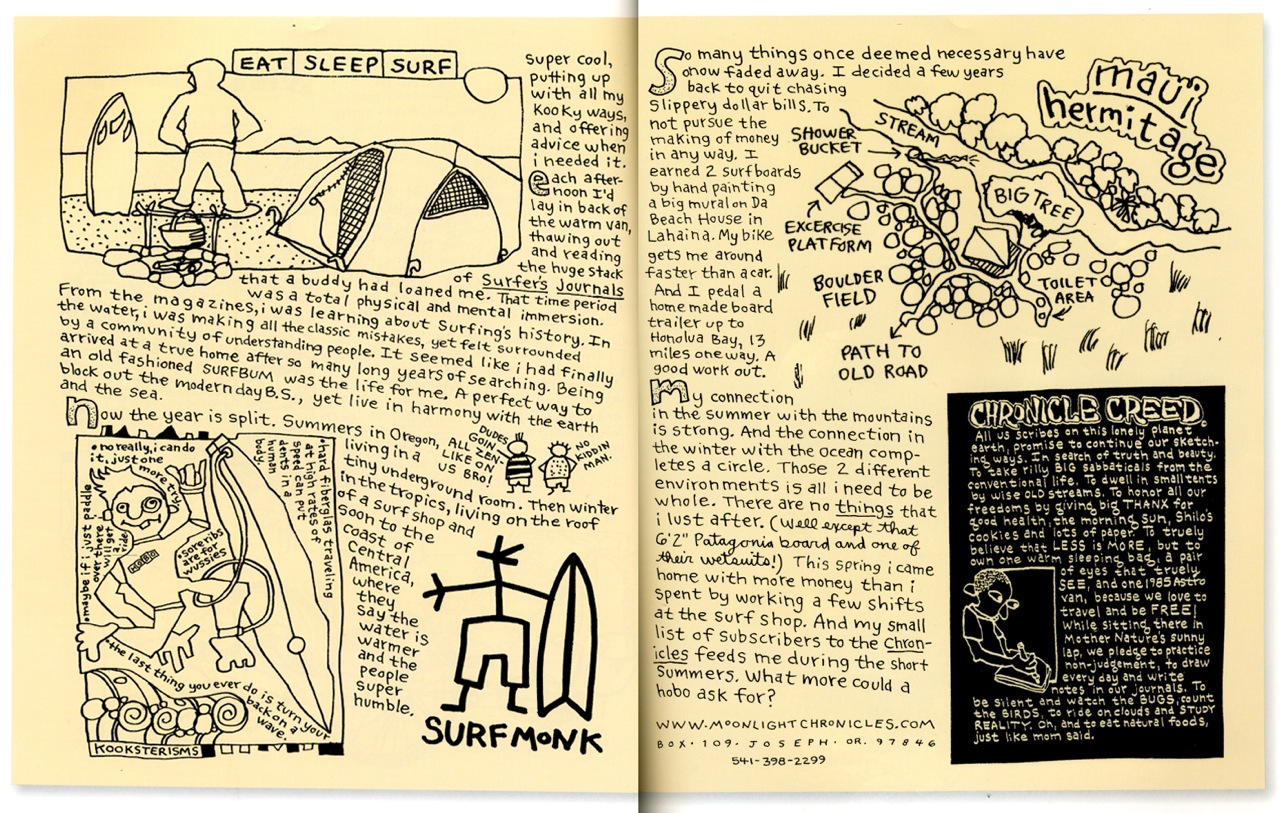 EAT SLEEP SURF
super cool,
putting up
with all my
kooky ways,
and offering
advice when
i needed it.
each after-
noon I'd
lay in back of
the warm van,
thawing out
and reading
the huge stack
of Surfer's Journals
that a buddy had loaned me. That time period
was a total physical and mental immersion.
From the magazines, i was learning about surfing's history. In
the water, i was making all the classic mistakes, yet felt surrounded
by a community of understanding people. It seemed like i had finally
arrived at a true home after so many long years of searching. Being
an old fashioned SURFBUM was the life for me. A perfect way to
block out the modern day B.S., yet live in harmony with the earth
and the sea.
Now the year is split. Summers in Oregon,
living in a
tiny underground room. Then winter
in the tropics, living on the roof
of a surf shop and
soon to the
coast of
Central
America,
where
they
say the
water is
warmer
and the
people
super
humble.
DUDES
GOIN'
ALL ZEN
LIKE ON
US BRO!
NO
KIDDIN
MAN.
• no really, i can do
it. just one
more try!
• maybe if i just paddle
over there
i will get
a
ride!
• sore ribs
are for
wussies
• hard fiberglas traveling
at high rates of
speed can put
dents in a
human
body.
• the last thing you ever do is turn your
back on a
wave.
KOOKSTERISMS
SURFMONK
So many things once deemed necessary have
now faded away. I decided a few years
back to quit chasing
slippery dollar bills. To
not pursue the
making of money
in any way. I
earned 2 surfboards
by hand painting
a big mural on Da
Beach House in
Lahaina. My bike
gets me around
faster than a car.
And I pedal a
home made board
trailer up to
Honolua Bay, 13
miles one way. A
good work out.
maui
hermitage
STREAM
SHOWER
BUCKET
BIG TREE
EXCERCISE
PLATFORM
BOULDER
FIELD
TOILET
AREA
PATH TO
OLD ROAD
My connection
in the summer with the mountains
is strong. And the connection in
the winter with the ocean comp-
letes a circle. Those 2 different
environments is all i need to be
whole. There are no things that
i lust after. (Well except that
6'2" Patagonia board and one of
their wetsuits!) This spring i came
home with more money than i
spent by working a few shifts
at the surf shop. And my small
list of subscribers to the Chron-
icles feeds me during the short
Summers. What more could a
hobo ask for?
WWW.MOONLIGHTCHRONICLES.COM
BOX • 109 • JOSEPH • OR. 97846
541-398-2299
CHRONICLE CREED.
All us scribes on this lonely planet
earth, promise to continue our sketch-
ing ways. In search of truth and beauty.
To take rilly BIG sabbaticals from the
conventional life. To dwell in small tents
by wise OLD streams. To honor all our
freedoms by giving big THANX for
good health, the morning Sun, Shilo's
cookies and lots of paper. To truely
believe that LESS is MORE, but to
own one warm sleeping bag, a pair
of eyes that truely
SEE, and one 1985 Astro
van, because we love to
travel and be FREE!
While sitting there in
Mother Nature's sunny
lap, we pledge to practice
non-judgement, to draw
every day and write
notes in our journals. To
be silent and watch the BUGS, count
the BIRDS, to ride on clouds and STUDY
REALITY. Oh, and to eat natural foods,
just like mom said.